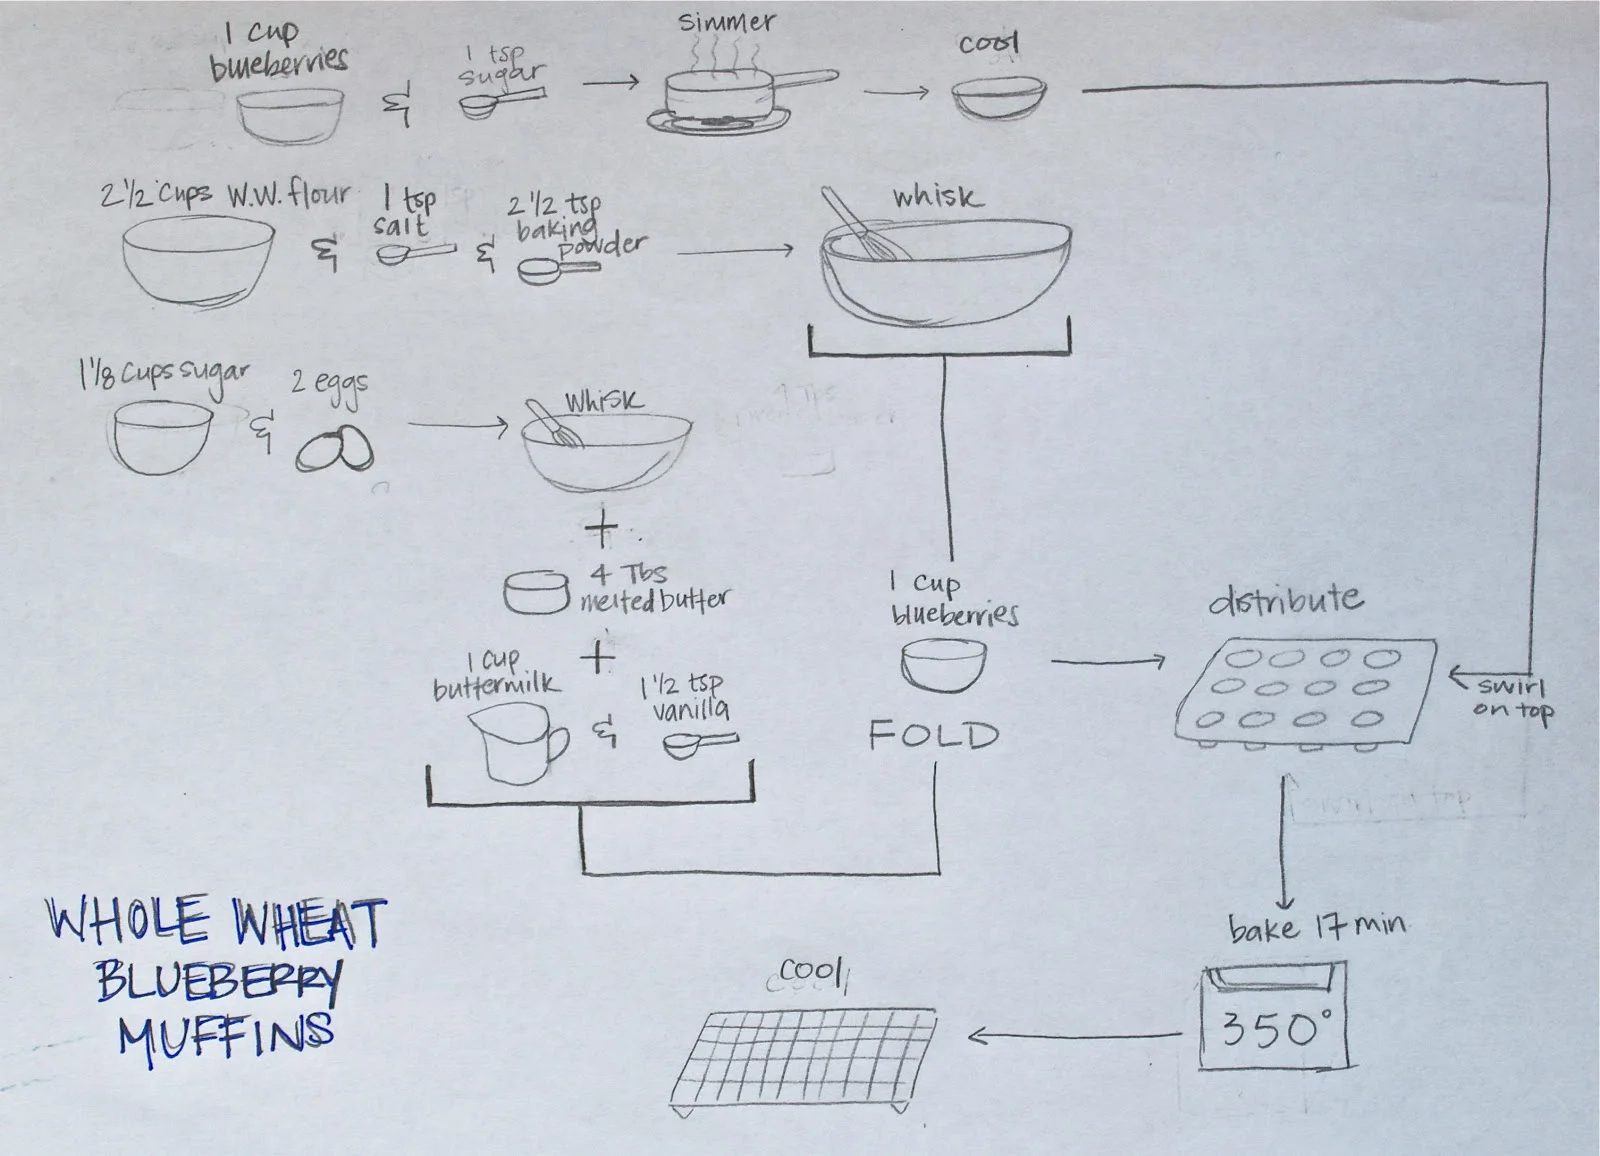 1 cup
blueberries
&
1 tsp
sugar
simmer
cool
2 1/2 cups W.W. flour
&
1 tsp
salt
&
2 1/2 tsp
baking
powder
whisk
1 1/8 cups sugar
&
2 eggs
whisk
+
4 Tbs
melted butter
+
1 cup
buttermilk
&
1 1/2 tsp
vanilla
1 cup
blueberries
FOLD
distribute
swirl
on top
bake 17 min
350°
cool
WHOLE WHEAT
BLUEBERRY
MUFFINS